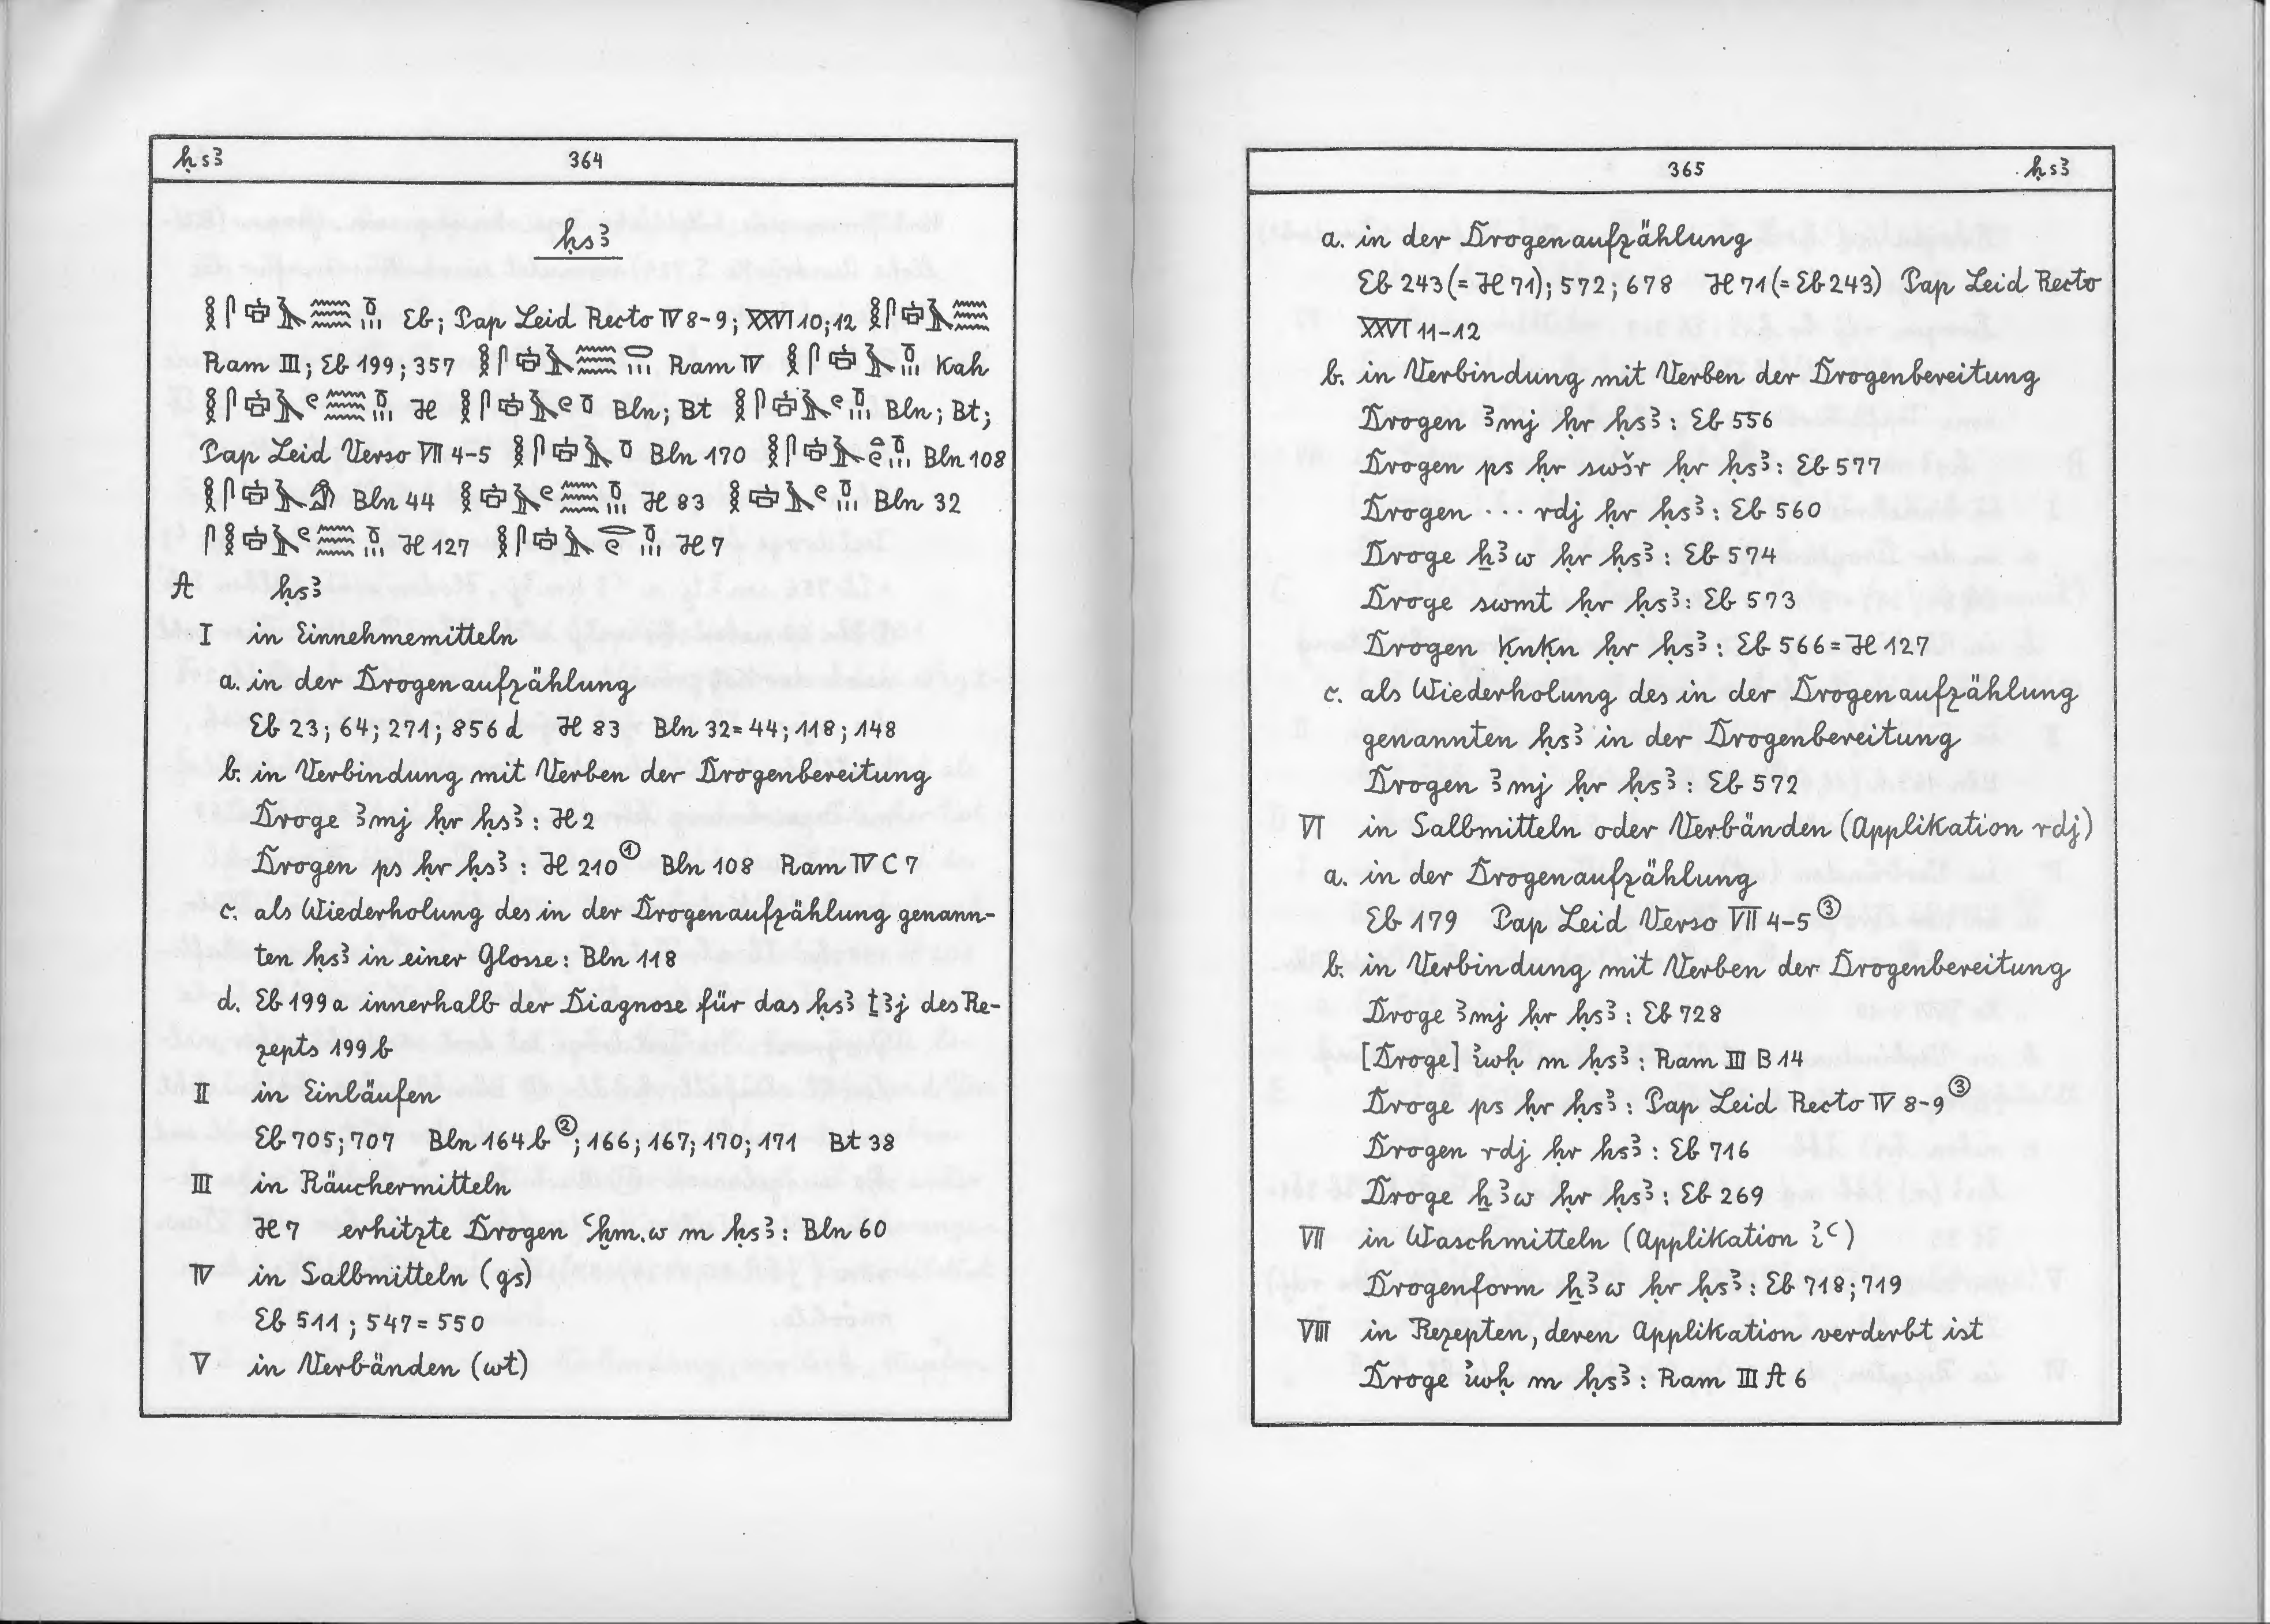 ḥsꜣ 364
ḥsꜣ
Eb; Pap Leid Recto IV 8-9; XXVI 10;12
Ram III; Eb 199; 357 Ram IV Kah
H Bln; Bt Bln; Bt;
Pap Leid Verso VII 4-5 Bln 170 Bln 108
Bln 44 H 83 Bln 32
H 127 H 7
A ḥsꜣ
I in Einnehmemitteln
a. in der Drogenaufzählung
Eb 23; 64; 271; 856 d H 83 Bln 32=44; 118; 148
b. in Verbindung mit Verben der Drogenbereitung
Droge ꜣmj ḥr ḥsꜣ: H 2
Drogen ps ḥr ḥsꜣ: H 210① Bln 108 Ram IV C 7
c. als Wiederholung des in der Drogenaufzählung genann-
ten ḥsꜣ in einer Glosse: Bln 118
d. Eb 199 a innerhalb der Diagnose für das ḥsꜣ ṯꜣj des Re-
zepts 199 b
II in Einläufen
Eb 705; 707 Bln 164 b②; 166; 167; 170; 171 Bt 38
III in Räuchermitteln
H 7 erhitzte Drogen ꜥḫm.w m ḥsꜣ: Bln 60
IV in Salbmitteln (gs)
Eb 511; 547=550
V in Verbänden (wt)
365 ḥsꜣ
a. in der Drogenaufzählung
Eb 243 (=H 71); 572; 678 H 71 (=Eb 243) Pap Leid Recto
XXVI 11-12
b. in Verbindung mit Verben der Drogenbereitung
Drogen ꜣmj ḥr ḥsꜣ: Eb 556
Drogen ps ḥr swšr ḥr ḥsꜣ: Eb 577
Drogen ... rdj ḥr ḥsꜣ: Eb 560
Droge ẖꜣw ḥr ḥsꜣ: Eb 574
Droge swmt ḥr ḥsꜣ: Eb 573
Drogen ḳnḳn ḥr ḥsꜣ: Eb 566=H 127
c. als Wiederholung des in der Drogenaufzählung
genannten ḥsꜣ in der Drogenbereitung
Drogen ꜣmj ḥr ḥsꜣ: Eb 572
VI in Salbmitteln oder Verbänden (Applikation rdj)
a. in der Drogenaufzählung
Eb 179 Pap Leid Verso VII 4-5③
b. in Verbindung mit Verben der Drogenbereitung
Droge ꜣmj ḥr ḥsꜣ: Eb 728
[Droge] iwḥ m ḥsꜣ: Ram III B 14
Droge ps ḥr ḥsꜣ: Pap Leid Recto IV 8-9③
Drogen rdj ḥr ḥsꜣ: Eb 716
Droge ẖꜣw ḥr ḥsꜣ: Eb 269
VII in Waschmitteln (Applikation iꜥ)
Drogenform ẖꜣw ḥr ḥsꜣ: Eb 718; 719
VIII in Rezepten, deren Applikation verderbt ist
Droge iwḥ m ḥsꜣ: Ram III A 6